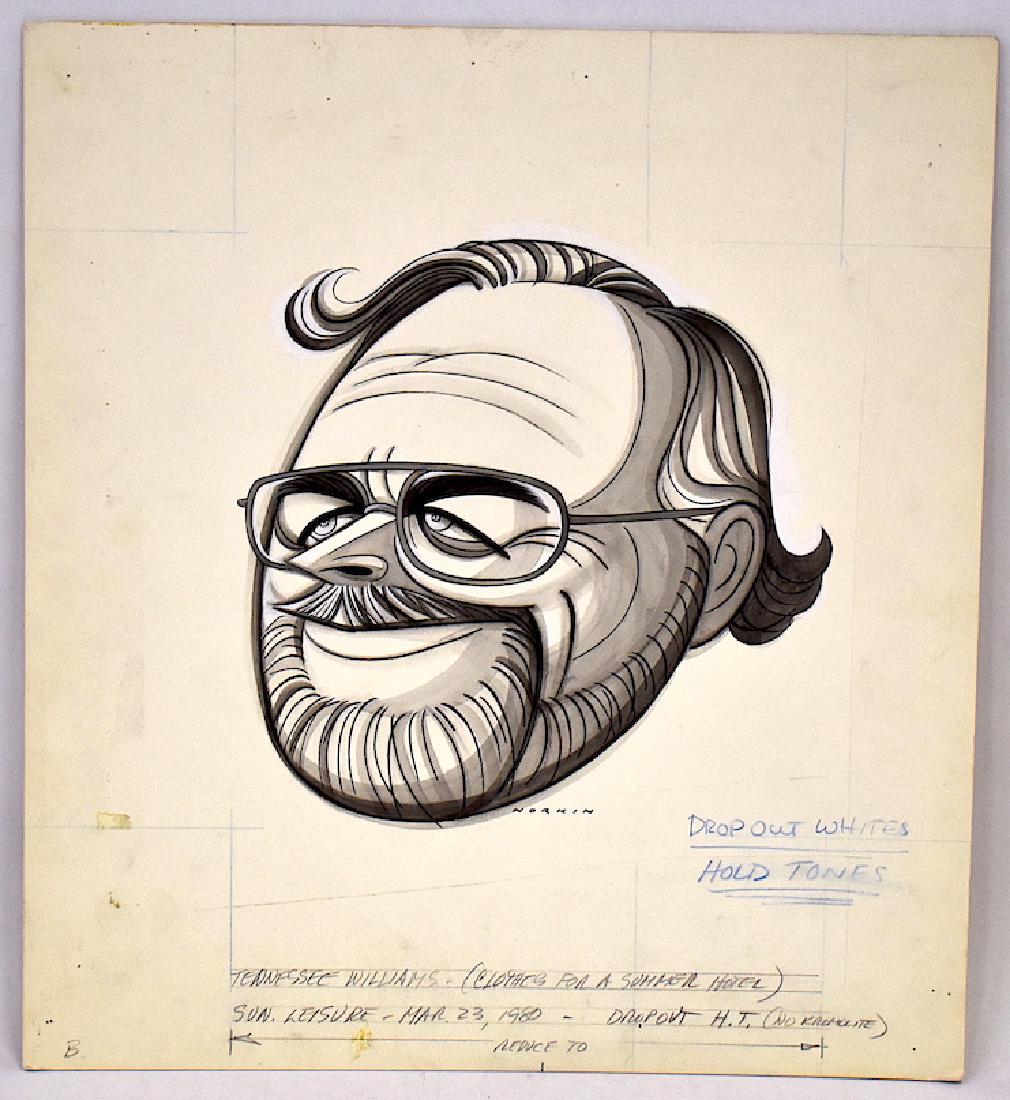 NORKIN
DROP OUT WHITES
HOLD TONES
TENNESSEE WILLIAMS - (CLOTHES FOR A SUMMER HOTEL)
SUN. LEISURE - MAR 23, 1980 - DROPOUT H.T. (NO KROMOLITE)
REDUCE TO
B